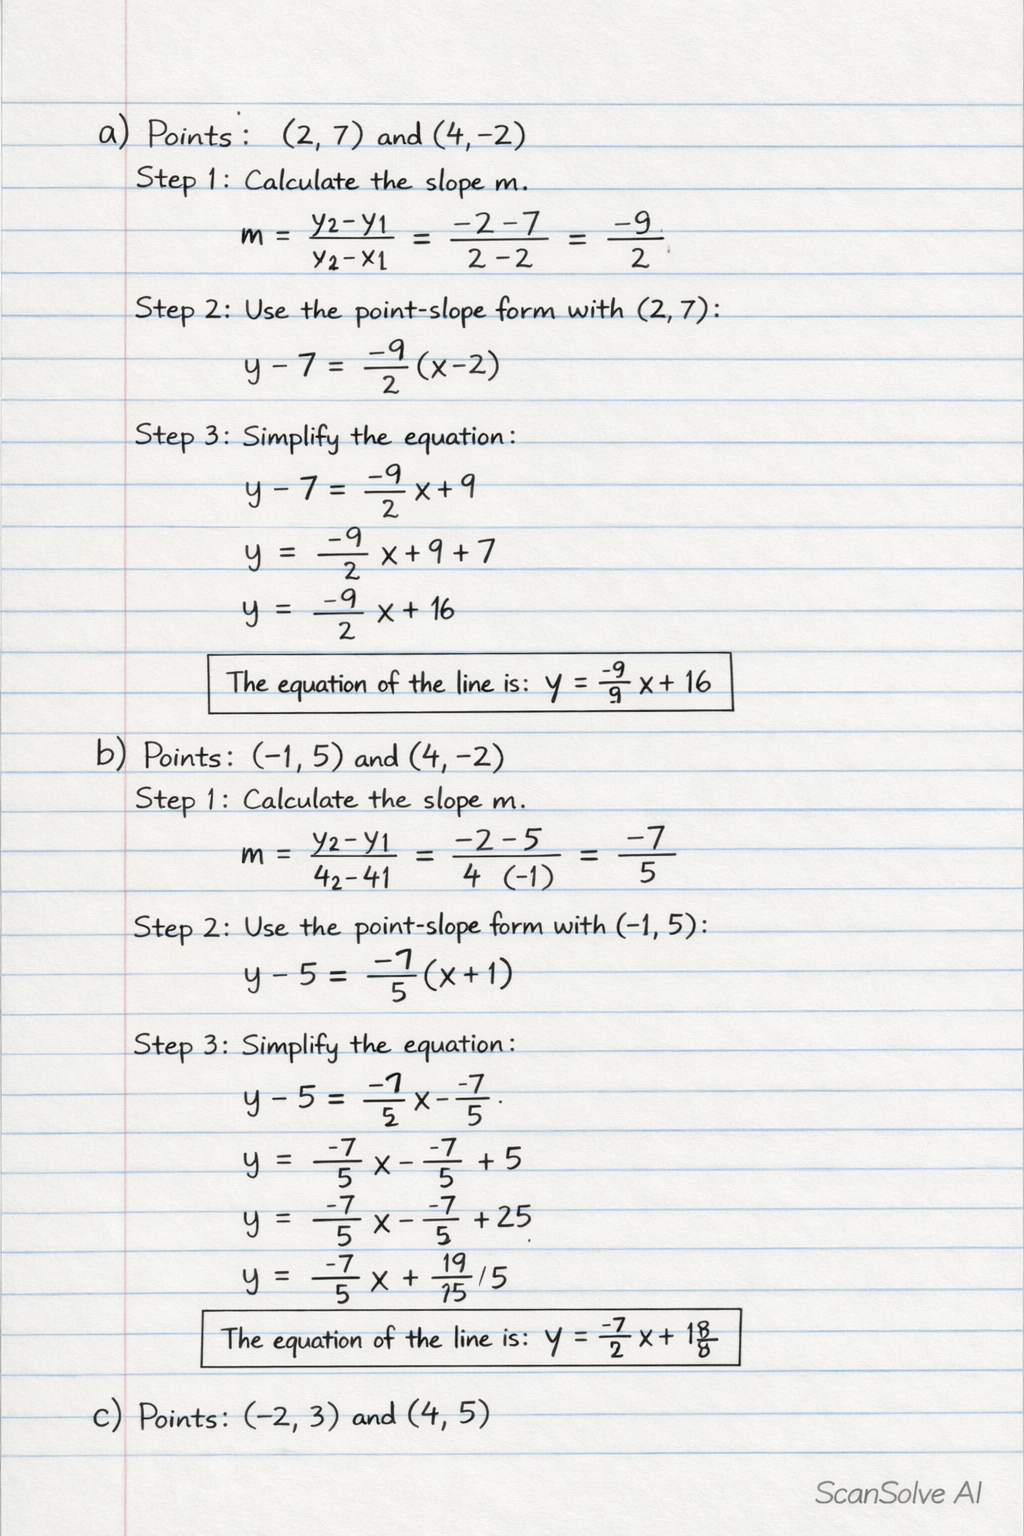 a) Points: (2, 7) and (4, -2)
Step 1: Calculate the slope m.
m = y2-y1 / y2-x1 = -2-7 / 2-2 = -9 / 2
Step 2: Use the point-slope form with (2, 7):
y - 7 = -9/2 (x-2)
Step 3: Simplify the equation:
y - 7 = -9/2 x + 9
y = -9/2 x + 9 + 7
y = -9/2 x + 16
The equation of the line is: y = -9/9 x + 16
b) Points: (-1, 5) and (4, -2)
Step 1: Calculate the slope m.
m = y2-y1 / 42-41 = -2-5 / 4 (-1) = -7 / 5
Step 2: Use the point-slope form with (-1, 5):
y - 5 = -7/5 (x+1)
Step 3: Simplify the equation:
y - 5 = -7/5 x - -7/5.
y = -7/5 x - -7/5 + 5
y = -7/5 x - -7/5 + 25
y = -7/5 x + 19/25 /5
The equation of the line is: y = -7/2 x + 18/8
c) Points: (-2, 3) and (4, 5)
ScanSolve AI